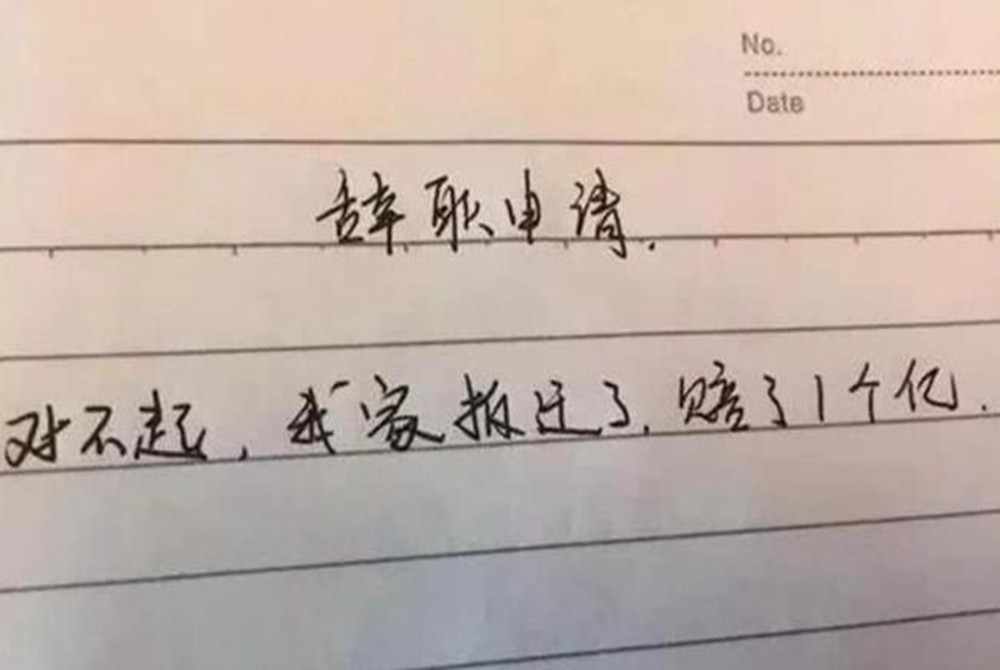 No.
Date
辞职申请.
对不起，我家拆迁了，赔了1个亿.